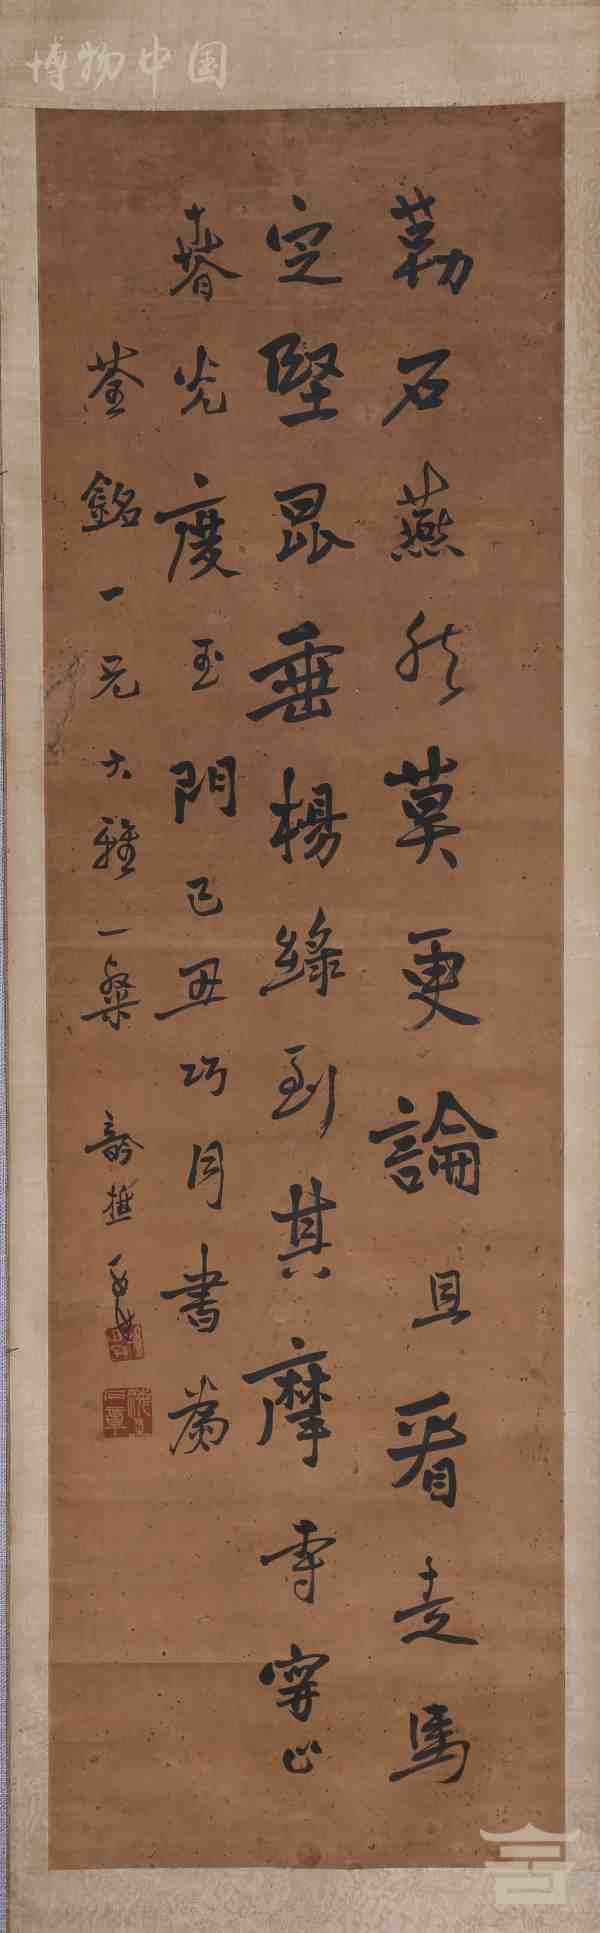 博物中国
勒石燕然莫更論且看走馬
定堅昆垂楊綠到其摩寺寧止
春光度玉門己丑巧月書為
荃銘一兄大雅一粲